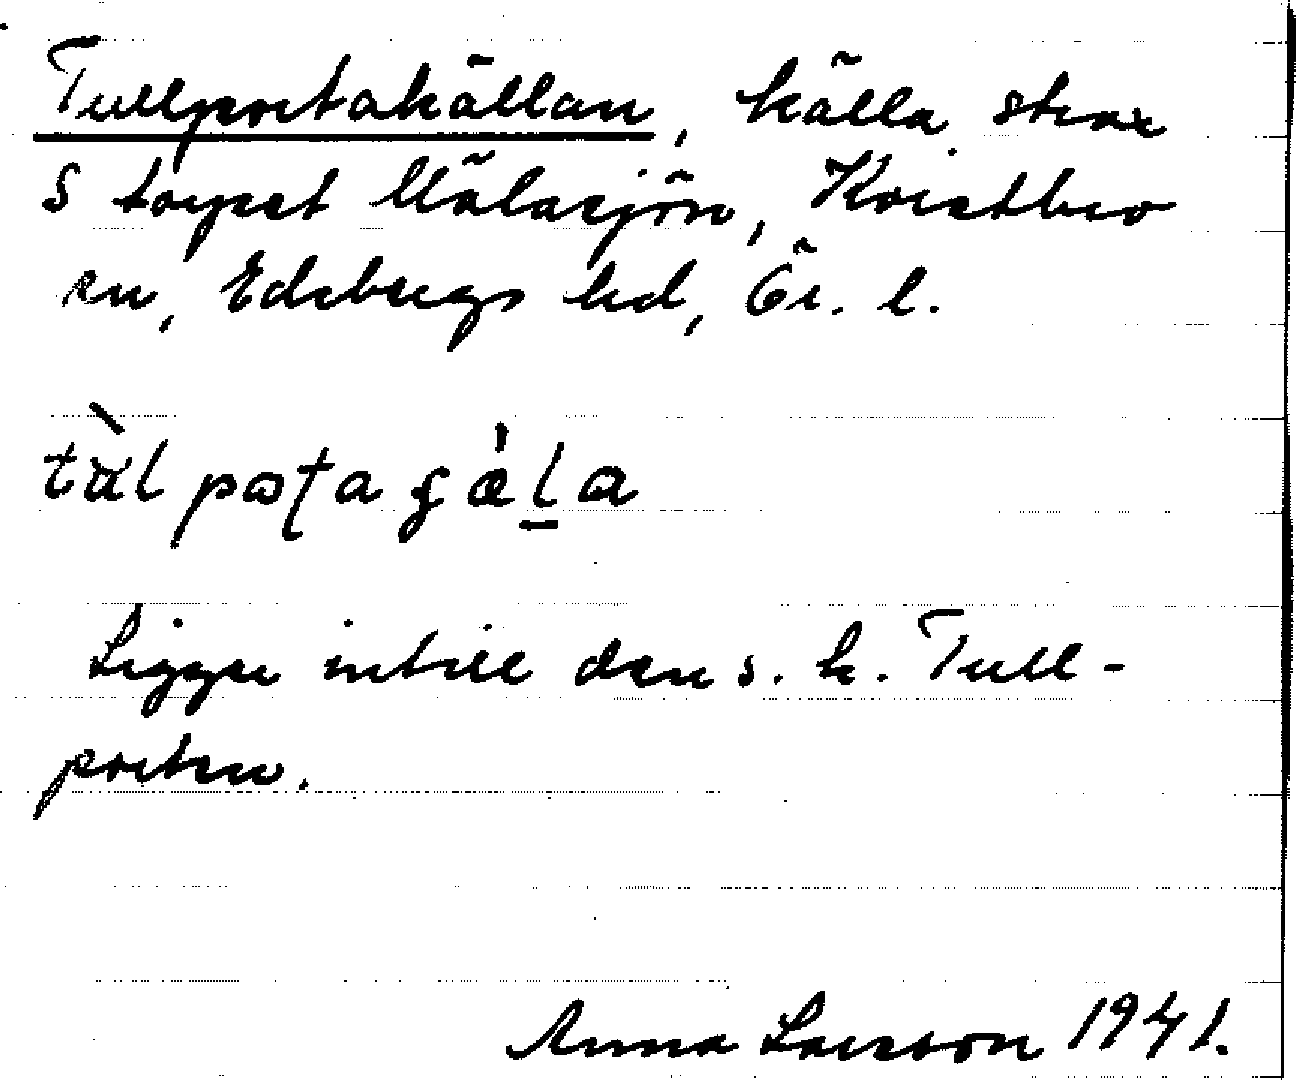 Tullportakällan, källa strax
S torpet Mälasjön, Kvistbro
sn, Edsbergs hd, Ör. l.
tu̇l pɷʈa ɕæ̀l̠a
Ligger intill den s. k. Tull-
porten.
Anna Larsson 1941.